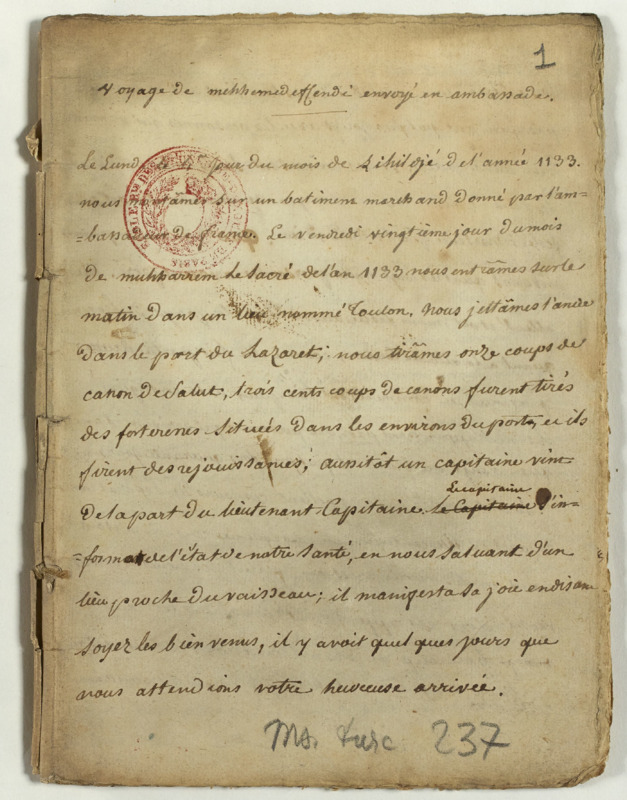 1
Voyage de mehhemedeffendi envoyé en ambassade.
Le Lundi jour du mois de Zihildjé del'année 1133.
nous sur un batiment marchand donné par l'am=
=bassadeur de france. Le vendredi vingtième jour du mois
de muhharrem le sacré del'an 1133 nous entrâmes sur le
matin dans un lieu nommé Toulon. Nous jettâmes l'ancre
dans le port du Lazaret; nous tirâmes onze coups de
canon de Salut, trois cents coups de canons furent tirés
des forteresses situées dans les environs du port, et ils
firent des rejouissances; aussitôt un capitaine vint
de la part du lieutenant-Capitaine. Le Capitaine s'in=
Le capitaine
=forma de l'état de notre santé, en nous saluant d'un
lieu proche du vaisseau; il manifesta sa joie en disant
soyez les bien venus, il y avoit quelques jours que
nous attendions votre heureuse arrivée.
Ms. turc 237